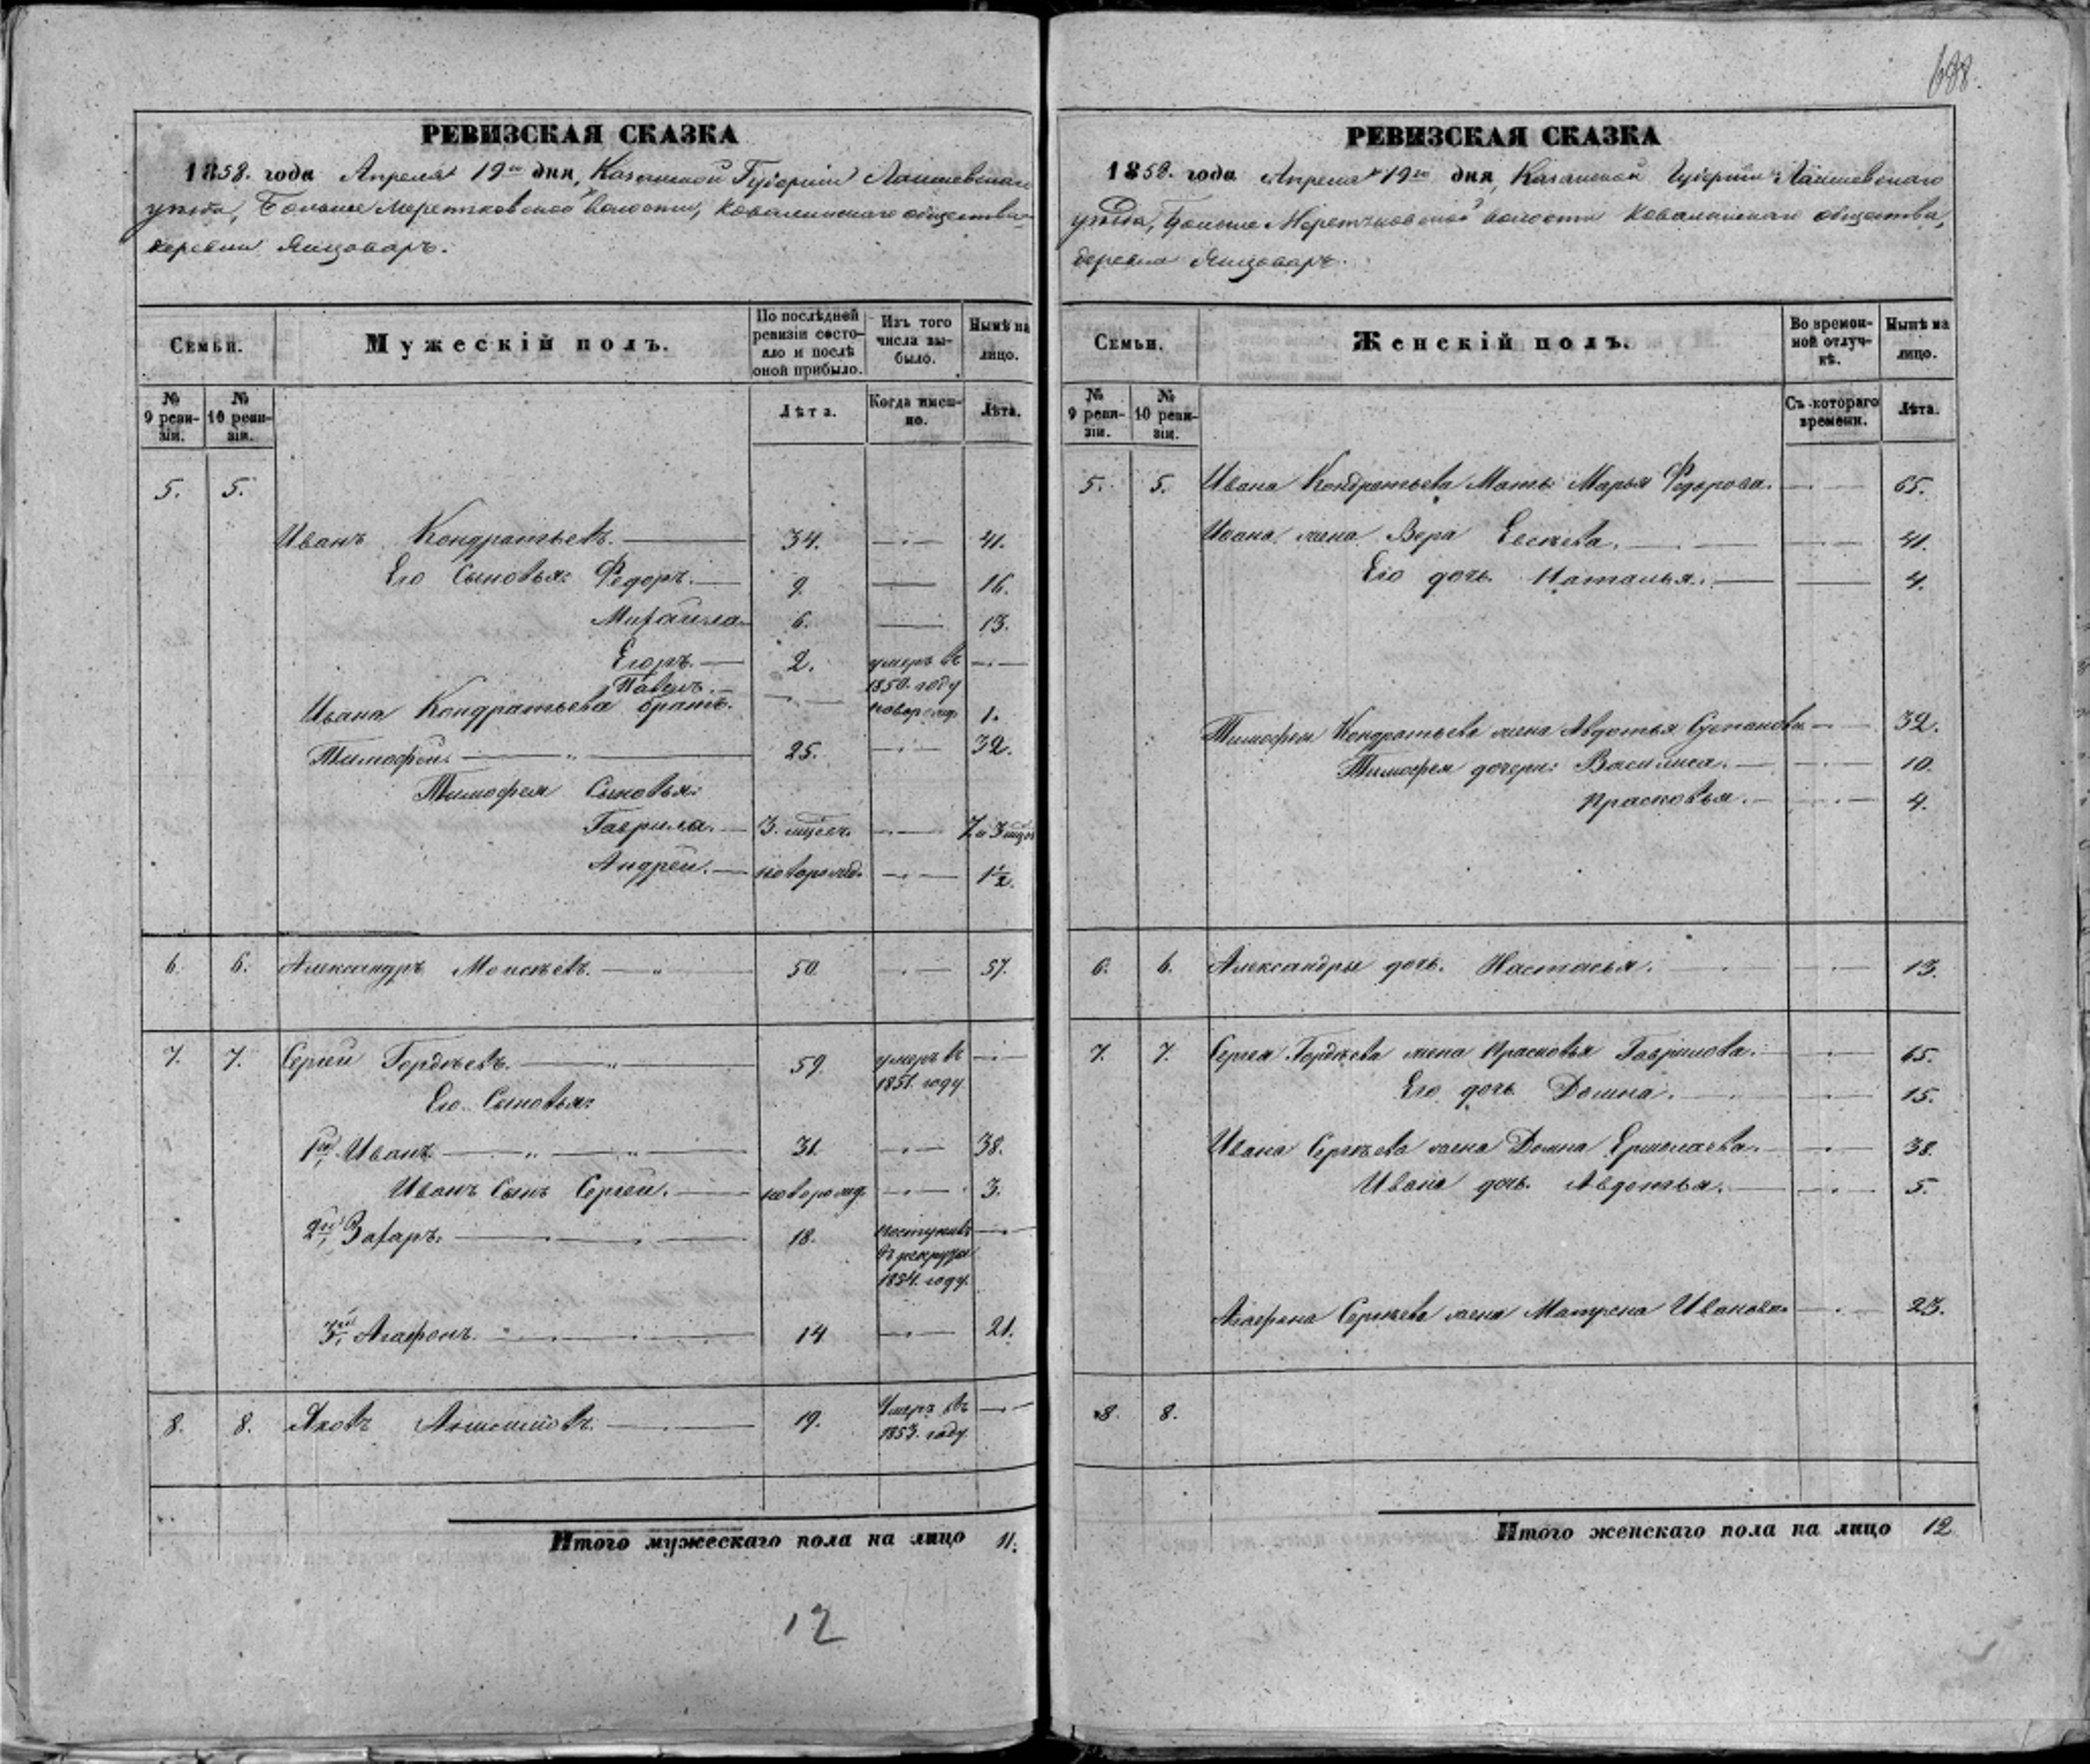 688.
РЕВИЗСКАЯ СКАЗКА
1858. года Апреля 19го дня, Казанской Губернии Лаишевскаго
уезда, Больше Меретковской волости, Ковалинскаго общества
деревни Янцоваръ.
Семьи.
Мужескій полъ.
По послѣдней ревизіи состояло и послѣ оной прибыло.
Изъ того числа выбыло.
Нынѣ на лицо.
№ 9 ревизіи.
№ 10 ревизіи.
Лѣта.
Когда именно.
Лѣта.
5. 5.
Иванъ Кондратьевъ. 34. 41.
Его Сыновья: Ѳедоръ. 9. 16.
Михайла 6. 13.
Егоръ. 2. умеръ въ 1850. году
Павелъ. новорожд. 1.
Ивана Кондратьева братъ.
Тимофей. 25. 32.
Тимофея Сыновья:
Гаврила. 3. мѣсяц. 7 и 3 мѣсяц
Андрей. новорожд. 1½.
6. 6. Александръ Моисѣевъ. 50. 57.
7. 7. Сергей Гордѣевъ. 59. умеръ въ 1851. году
Его Сыновья:
1й, Иванъ 31. 38.
Иванъ Сынъ Сергей. новорожд. 3.
2й, Захаръ. 18. поступилъ въ рекруты 1854. году.
3й, Агафонъ. 14. 21.
8. 8. Яковъ 19. Умеръ въ 1853. году.
Итого мужескаго пола на лицо 11.
12
РЕВИЗСКАЯ СКАЗКА
1858. года Апреля 19го дня, Казанской Губернии Лаишевскаго
уезда, Больше Меретковской волости Ковалинскаго общества,
деревни Янцоваръ.
Семьи.
Женскій полъ.
Во временной отлучкѣ.
Нынѣ на лицо.
№ 9 ревизіи.
№ 10 ревизіи.
Съ котораго времени.
Лѣта.
5. 5. Ивана Кондратьева Мать Марья Ѳедорова. 65.
Ивана жена Вера Евсѣева. 41.
Его дочь Наталья. 4.
Тимофея Кондратьева жена Авдотья Степанова 32.
Тимофея дочери: Василиса. 10.
Прасковья. 4.
6. 6. Александры дочь. Настасья. 13.
7. 7. Сергея Гордѣева жена Прасковья Гаврилова. 65.
Его дочь Домна. 15.
Ивана Сергѣева жена Домна Ермолаева. 38.
Ивана дочь. Авдотья. 5.
Агафона Сергѣева жена Матрена Иванова 23.
8. 8.
Итого женскаго пола на лицо 12